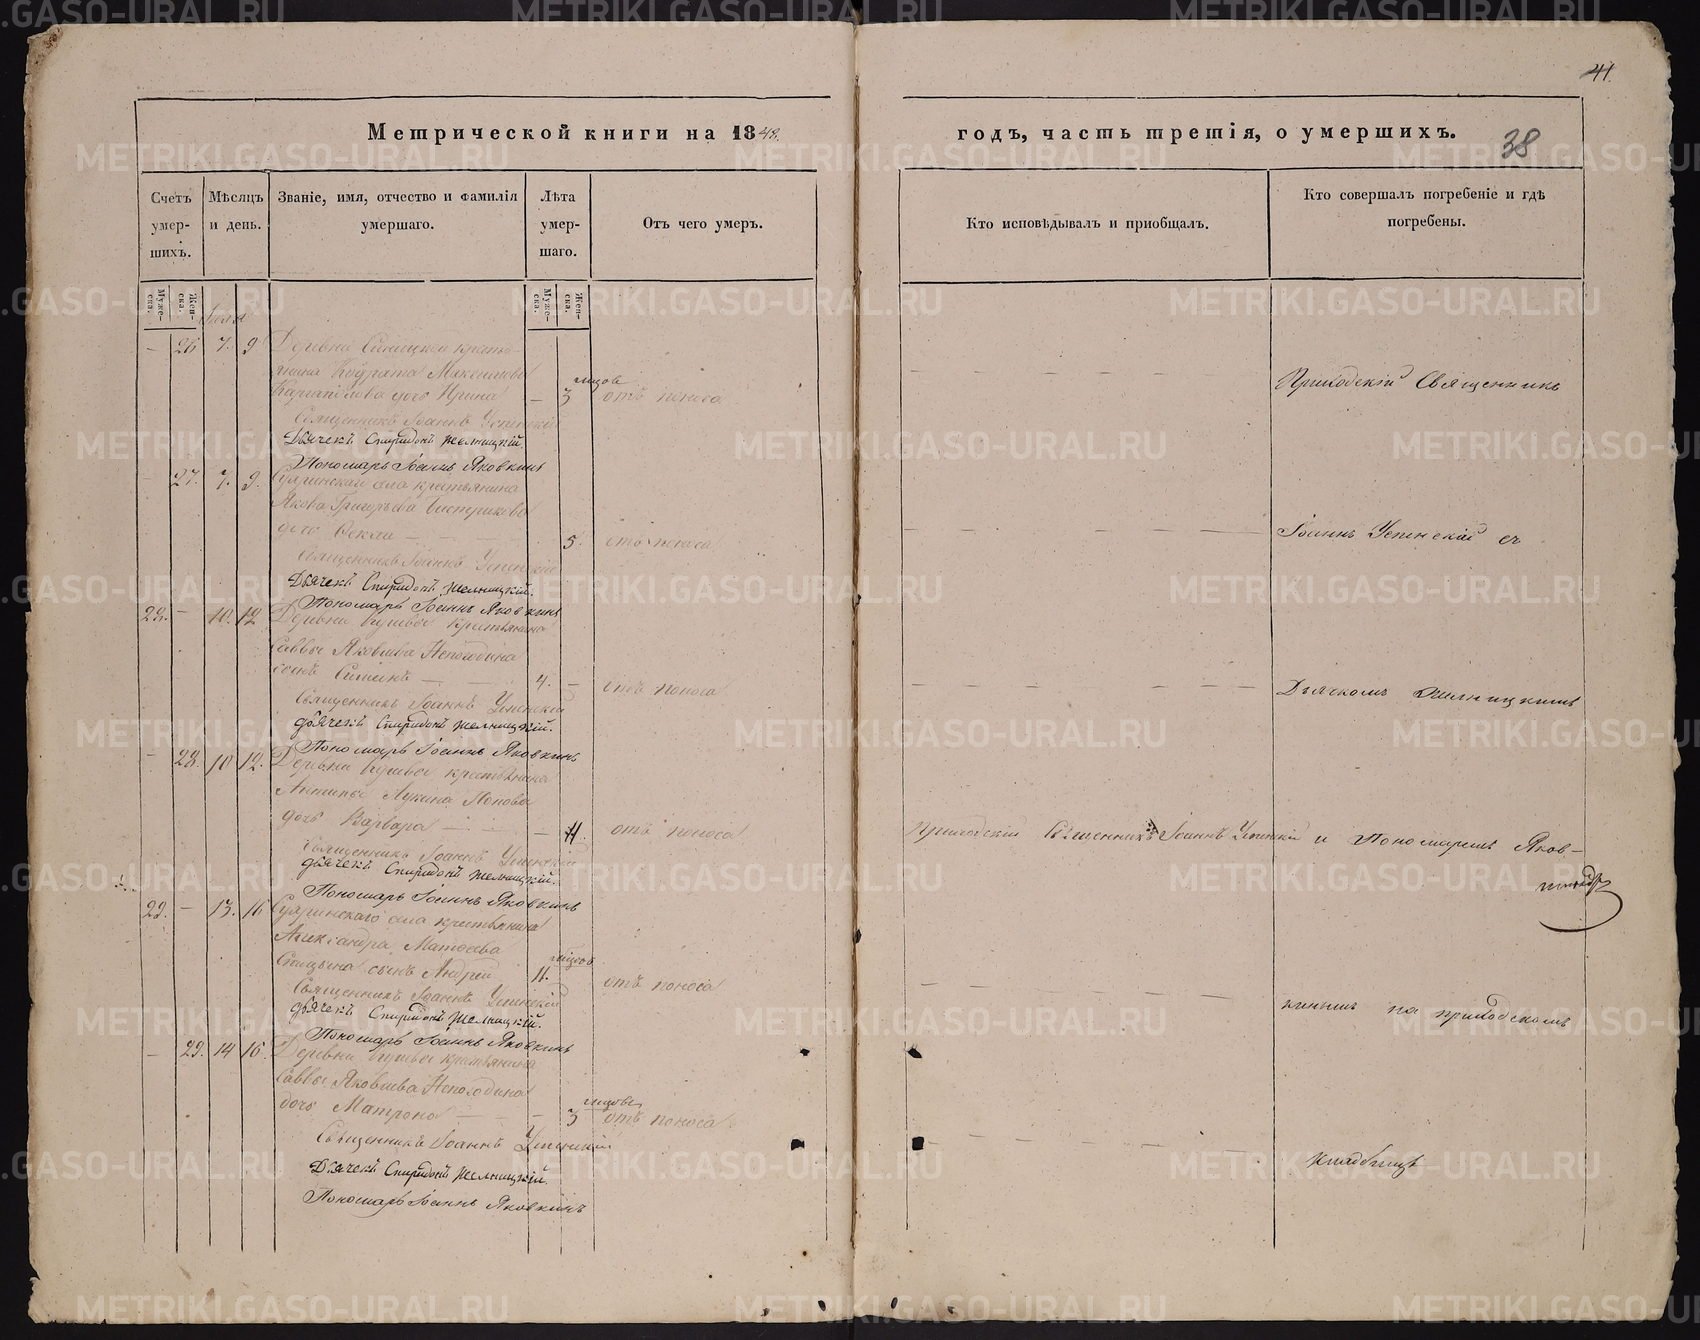 41.
Метрической книги на 1848.
годъ, часть третія, о умершихъ.
38
Счетъ умер-шихъ.
Мѣсяцъ и день.
Званіе, имя, отчество и фамилія умершаго.
Лѣта умер-шаго.
Отъ чего умеръ.
Кто исповѣдывалъ и приобщалъ.
Кто совершалъ погребеніе и гдѣ погребены.
Муже-ска.
Жен-ска.
Муже-ска.
Жен-ска.
— 26 7. 9 Деревни
дочь Ирина — 3 отъ поноса
Священникъ Іоаннъ Успенскій
Дьячекъ Спиридонъ Желницкій.
Пономарь Іоаннъ Яковкинъ
Приходскій Священникъ
27. 7. 9. села крестьянина
Якова Григорьева
дочь Фекла — 5. отъ поноса
Священникъ Іоаннъ Успенскій
Дьячекъ Спиридонъ Желницкій.
Пономарь Іоаннъ Яковкинъ
Іоаннъ Успенскій съ
28. — 10. 12 Деревни крестьянина
Саввы Яковлева Непогодина
сынъ Симеонъ — 4. — отъ поноса
Священникъ Іоаннъ Успенскій
дьячекъ Спиридонъ Желницкій.
Пономарь Іоаннъ Яковкинъ
Дьячкомъ Желницкимъ
— 28. 10 12. Деревни крестьянина
Антипы Лукина Попова
дочь Варвара — 4. отъ поноса
Священникъ Іоаннъ Успенскій
дьячекъ Спиридонъ Желницкій.
Пономарь Іоаннъ Яковкинъ
Приходскій Священникъ Іоаннъ Успенскій и Пономаремъ Яков-
29. — 13. 16 села крестьянина
Александра Матѳеева
сынъ Андрей 4. отъ поноса
Священникъ Іоаннъ Успенскій
дьячекъ Спиридонъ Желницкій.
Пономарь Іоаннъ Яковкинъ
кинымъ на приходскомъ
— 29. 14 16. Деревни крестьянина
Саввы Яковлева Непогодина
дочь Матрона — 3 отъ поноса
Священникъ Іоаннъ Успенскій
Дьячекъ Спиридонъ Желницкій.
Пономарь Іоаннъ Яковкинъ
кладбищѣ
METRIKI.GASO-URAL.RU